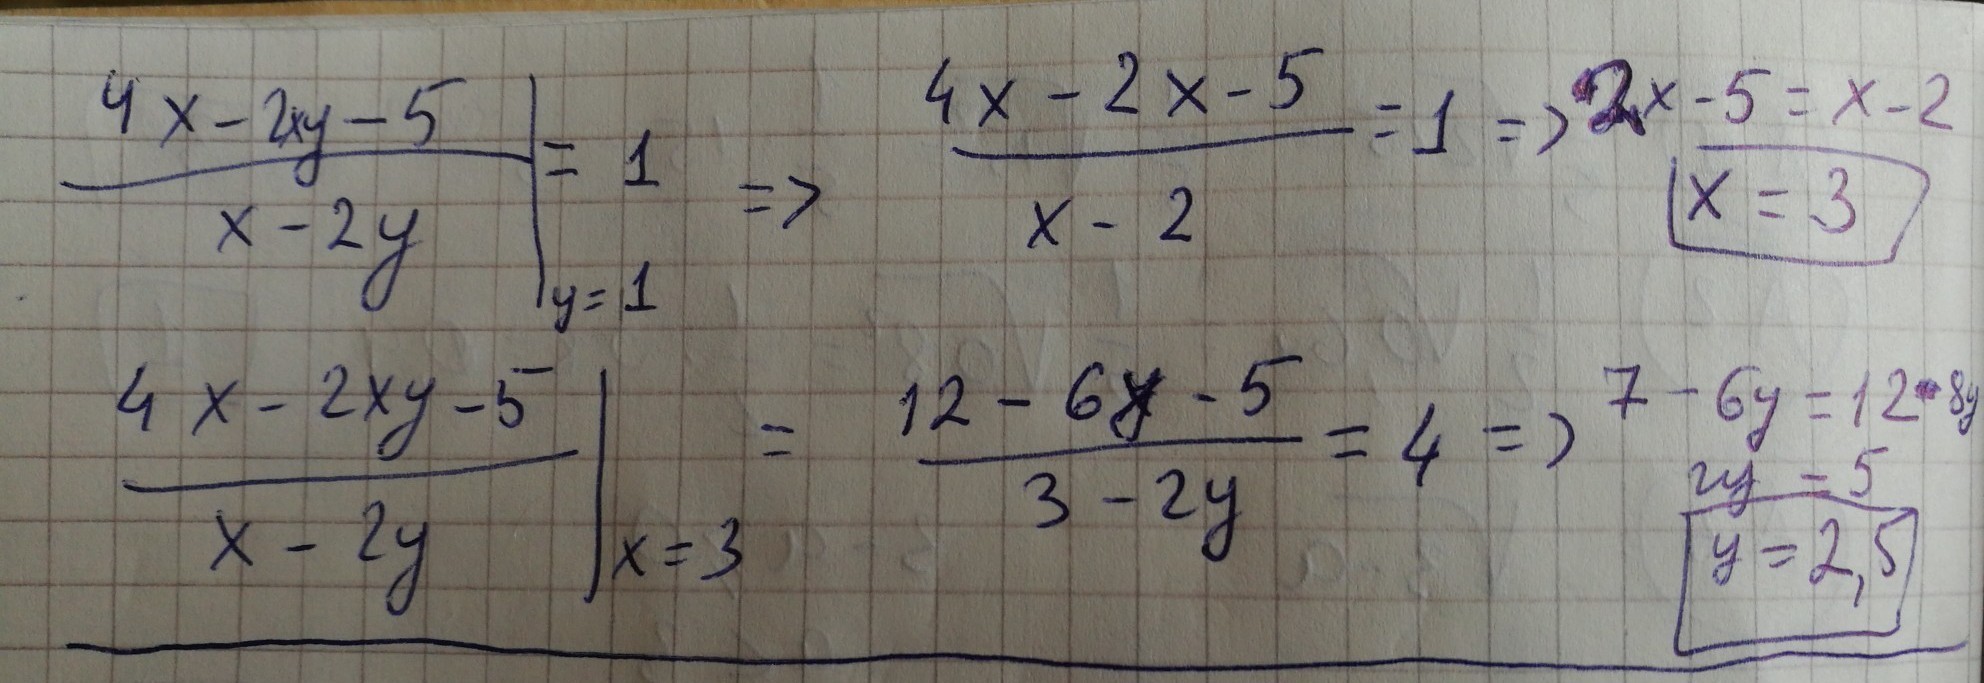 4x - 2xy - 5 / x - 2y | y = 1 = 1 => 4x - 2x - 5 / x - 2 = 1 => 2x - 5 = x - 2
x = 3
4x - 2xy - 5 / x - 2y | x = 3 = 12 - 6y - 5 / 3 - 2y = 4 => 7 - 6y = 12 - 8y
2y = 5
y = 2,5